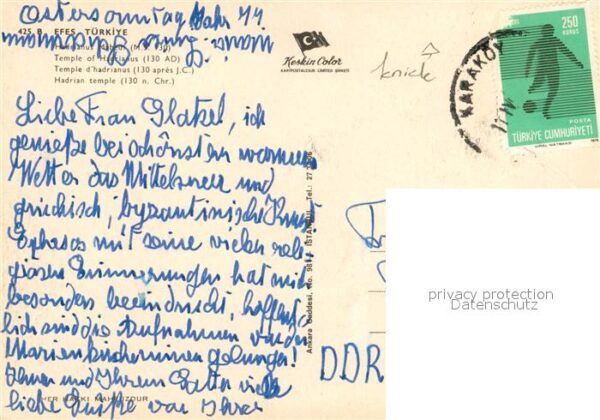 Ostersonntag Jahr 77
425 B EFES TÜRKİYE
Hadrianus Mabedi (M.S. 130)
Temple of Hadrianus (130 AD)
Temple d'hadrianus (130 après J.C.)
Hadrian temple (130 n. Chr.)
Keskin Color
KARTPOSTALCILIK LIMITED ŞİRKETİ
knick
KARAKÖY
250
KURUŞ
POSTA
TÜRKİYE CUMHURİYETİ
Liebe Frau Glatzel, ich
genieße bei schönstem warmen
Wetter das Mittelmeer und
griechisch, byzantinische Kunst,
Ephesos mit seine vielen reli-
giösen Erinnerungen hat mich
besonders beeindruckt, hoffent-
lich sind die Aufnahmen von den
Marienkirchenruinen gelungen!
Ihnen und Ihrem Gatten viele
liebe Grüße von Ihrer
Ankara Caddesi, No. 98 İSTANBUL Tel.: 27
HER HAKKI MAHFUZDUR
DDR
privacy protection
Datenschutz